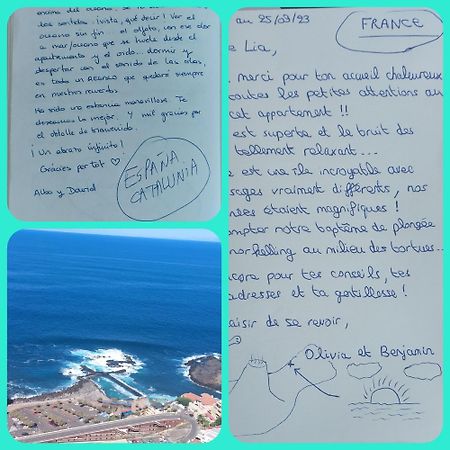 los sentidos. ¡Vista, qué decir! Ver el
océano sin fin... el olfato, con ese olor
a mar/océano que se huele desde el
apartamento y el oído... dormir y
despertar con el sonido de las olas,
es todo un REGALO que quedará siempre
en nuestros recuerdos.
Ha sido una estancia maravillosa. Te
deseamos lo mejor. Y mil gracias por
el detalle de bienvenida.
¡Un abrazo infinito!
Gràcies per tot ♡
Alba y David
ESPAÑA
CATALUNIA
au 25/03/23
FRANCE
e Lia,
merci pour ton accueil chaleureux
toutes les petites attentions au
cet appartement !!
est superbe et le bruit des
tellement relaxant...
e est une île incroyable avec
sages vraiment différents, nos
nées étaient magnifiques !
ompter notre baptême de plongée
norkelling au milieu des tortues...
ncore pour tes conseils, tes
adresses et ta gentillesse !
aisir de se revoir,
Olivia et Benjamin